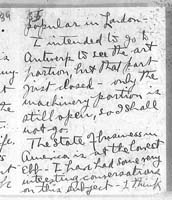 popular in London -
I intended to go to
Antwerp to see the art
portion, but that part
Just closed - only the
machinery portion is
still open, so I shall
not go.
The state of business in
America is at the lowest
ebb - I have had some very
interesting conversations
on this subject - I think